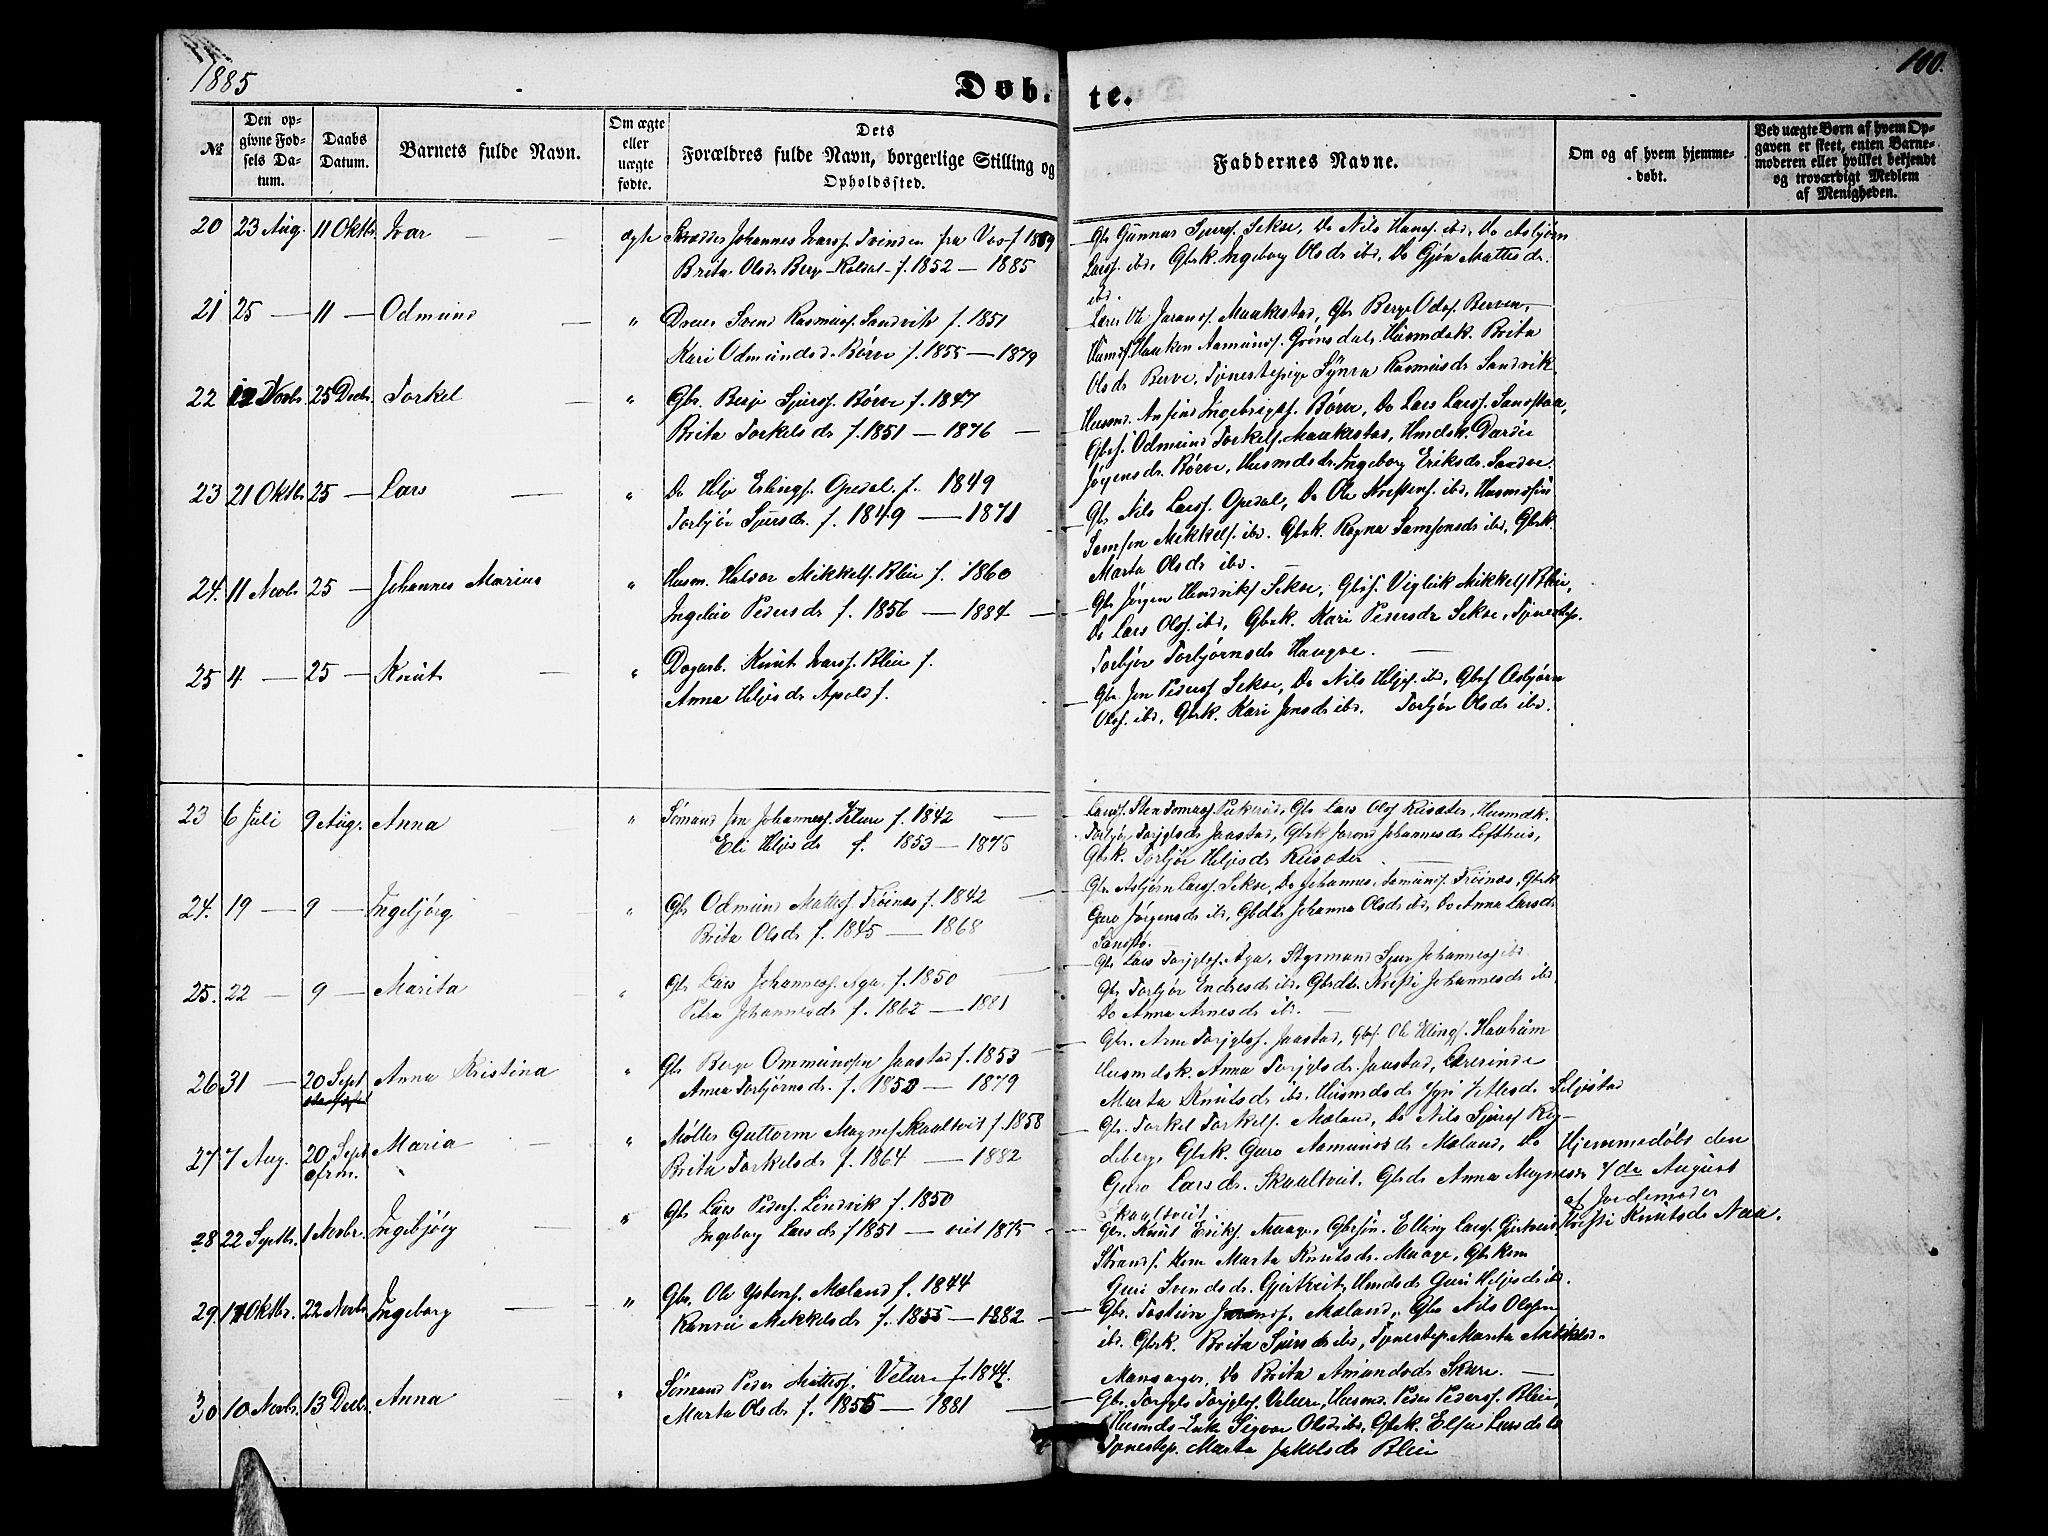 1885
Døb- te.
100.
№
Den opgivne Fødsels Datum.
Daabs Datum.
Barnets fulde Navn.
Om ægte eller uægte fødte.
Dets Forældres fulde Navn, borgerlige Stilling og Opholdssted.
Faddernes Navne.
Om og af hvem hjemmedøbt.
Ved uægte Børn af hvem Opgaven er skeet, enten Barnemoderen eller hvilket bekjendt og troværdigt Medlem af Menigheden.
20 23 Aug. 11 Oktbr. Ivar ægte Skrædder Johannes Ivarss. Tvinden fra Vos f. 1859
Brita Olsdr Berge Koldal f. 1852 — 1885
Gbr Gunnar Sjurss. Sekse, Do Nils Hanss. ibd, Do Asbjørn
Larss. ibd, Gbrk. Ingeborg Olsdr ibd, Do Gjøa Mattesdr.
ibd.
21 25 — 11 — Odmund " Dreier Svend Rasmuss. Sandvik f. 1851
Kari Odmundsd. Børve f. 1855 — 1879
Ole Jorans. Maakestad, Gbr Berge Odss. Berven,
Husmd. Haaken Aamunds. Grønsdal, Husmdsk. Brita
Olsdr Berve, Tjenestepige Synva Rasmusdr Sandvik.
22 12 Novbr. 25 Decbr. Torkel " Gbr. Berje Sjurss. Børve f. 1847
Brita Torkelsdr f. 1851 — 1876 —
Husmd. Anfind Ingebrigts. Børve, Do Lars Larss. Sandstaa,
Gbrs. Odmund Torkels. Maakestad, Hmdsk. Durdei
Jørgensdr. Børve, Husmdsdr. Ingeborg Eriksdr. Sandve.
23 21 Oktbr. 25 — Lars " Do Helje Erlings. Opedal f. 1849
Torbjør Sjursdr. f. 1849 — 1871
Gbr Nils Larss. Opedal, Do Ole Kristens. ibd, Husmdssøn
Samson Mikkels. ibd. Gbrk. Ragna Samsonsdr ibd, Gbrk.
Marta Olsdr ibd.
24. 11 Novbr 25 — Johannes Marius " Husm. Halvor Mikkels. Bleie f. 1860
Ingeleiv Pedersdr f. 1856 — 1884 —
Gbr Jørgen Hendriks. Sekse, Gbrs. Vigleik Mikkels Bleie,
Do Lars Olss. ibd, Gbrk. Kari Pedersdr Sekse, Tjenestep.
Torbjør Torbjørnsdr Haugse.
25 4 — 25 — Knut " Dagarb. Knut Ivarss. Bleie f.
Anna Heljesdr Apold f.
Gbr. Jon Peders. Sekse, Do Nils Heljes. ibd, Gbrs Asbjørn
Olss. ibd, Gbrk. Kari Jonsdr ibd. Torbjør Olsdr ibd.
23 6 Juli 9 Aug. Anna " Sømand Jon Johanness. Velure f. 1842 —
Eli Heljesdr f. 1853 — 1875
Gbr Lars Olss Reisæter, Husmdk.
Torbjør Torjelsdr Jaastad, Gbrk Jorond Johannesdr Lofthus,
Gbrk. Torbjør Heljesdr Reisæter.
24. 19 — 9 — Ingebjørg " Gbr Odmund Mattess Trøinæs f. 1842 —
Brita Olsdr f. 1845 — 1868
Gbr. Asbjørn Larss. Sekse, Do Johannes Aamunds. Trøinæs, Gbrk
Guro Jørgensdr ibd, Gbdtr Johanna Olsdr ibd, Do Anna Larsdr
Sandstø.
25. 22 — 9 — Marita " Gbr Lars Johanness. Aga f. 1850 —
Petra Johannesdr f. 1862 — 1881
Gbr Lars Torjels. Aga, Styrmand Sjur Johanness ibd
Gbr Torbjør Endresdr ibd, Gbrdtr. Kristi Johannesdr ibd
Do Anna Arnesdr ibd.
26 31 — 20 Sept Anna Kristina " Gbr Berge Ommundsen Jaastad f. 1853 —
Anna Torbjørnsdr. f. 1850 — 1879
Gbr. Arne Torjels. Jaastad, Gbrs. Ole Ellings. Hauheim
Husmdsk. Anna Torjelsdr. Jaastad, Lærerinde
Marta Knutsdr ibd. Husmdsdr Jyri Vetlesdr Seljestad
27 7 Aug. 20 Sept Maria " Møller Guttorm Magness Skaaltveit f. 1858 —
Brita Torkelsdr f. 1864 — 1882
Gbr. Torkel Torkels. Mæland, Do Nils Sjurss Reg-
leberg, Gbrk. Guro Aamundsdr Mæland, Do
Guro Larsdr. Skaaltveit. Gbrdr Anna Magnesdr
Skaaltveit.
Hjemmedøbt den
7de August
af Jordemoder
Kristi Knutsdr Naa.
28 22 Septbr. 1 Novbr. Ingebjørg " Gbr Lars Peders. Lindvik f. 1850
Ingeborg Larsdr f 1851 — viet 1875 —
Gbr. Knut Eriks. Maage, Gbrsøn. Elling Larss. Gjertveit,
Strands. Kone Marta Knutsdr. Maage, Gbrkone
Guri Svendsdr. Gjertveit, Hmdsdr Guri Heljesdr ibd.
29. 17 Oktbr. 22 Novbr Ingeborg " Gbr Ole Ystens. Mæland f. 1844
Ranvei Mikkelsdr f. 1855 — 1882 —
Gbr. Tostein Mæland, Gbr Nils Olssen
ibd. Gbrk. Brita Sjursdr ibd, Tjenestep. Marita Mikkelsd.
Mansager, Do Brita Amundsdr Skare. —
30 10 Novbr. 13 Decbr. Anna " Sømand Peder Mattess. Velure f 1844.
Marta Olsdr f. 1855 — 1881 —
Gbr. Torjels Torjelss. Velure, Husmd. Peder Peders. Bleie,
Husmds-Enke Sigvor Olsdr ibd, Gbrk. Elsa Larsdr ibd
Tjenestep. Marta Jakobsdr Bleie